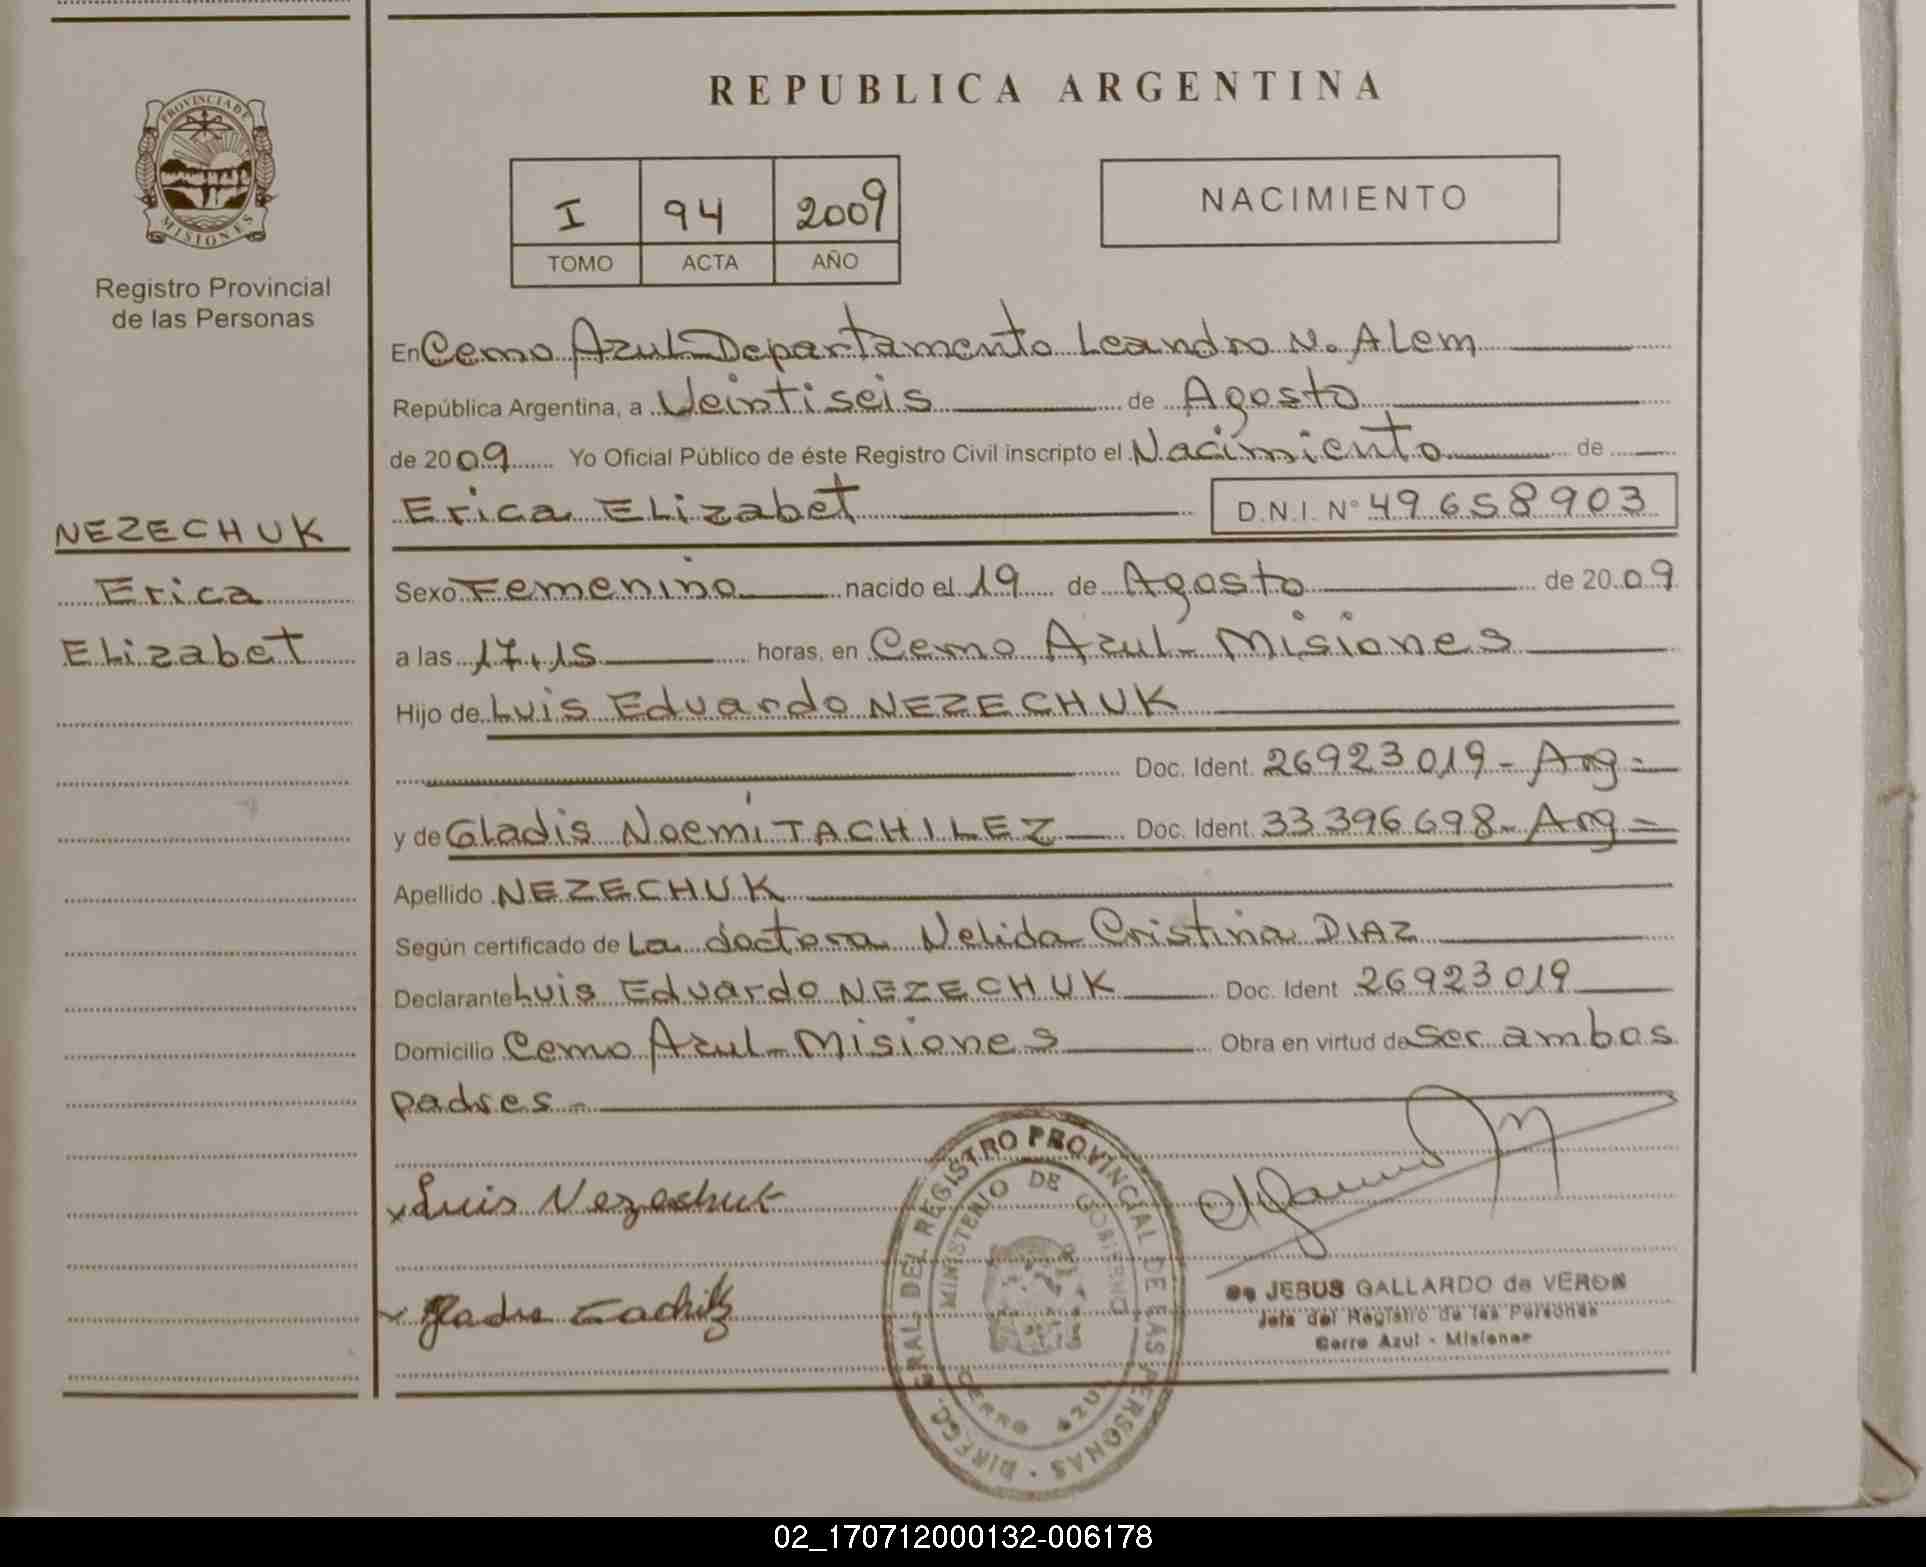 REPUBLICA ARGENTINA
PROVINCIA DE
MISIONES
Registro Provincial
de las Personas
I 94 2009
TOMO ACTA AÑO
NACIMIENTO
En Cerro Azul - Departamento Leandro N. Alem
República Argentina, a Veintiseis de Agosto
de 2009 Yo Oficial Público de éste Registro Civil inscripto el Nacimiento de
Erica Elizabet D.N.I. N° 49658903
NEZECHUK
Erica
Elizabet
Sexo Femenino nacido el 19 de Agosto de 2009
a las 17,15 horas, en Cerro Azul - Misiones
Hijo de Luis Eduardo NEZECHUK
Doc. Ident. 26923019 - Arg =
y de Gladis Noemí TACHILEZ Doc. Ident. 33396698 - Arg =
Apellido NEZECHUK
Según certificado de La doctora Nelida Cristina DIAZ
Declarante Luis Eduardo NEZECHUK Doc. Ident 26923019
Domicilio Cerro Azul - Misiones Obra en virtud de Ser ambos
padres -
x Luis Nezechuk
x
DIRECC. GRAL. DEL REGISTRO PROVINCIAL DE LAS PERSONAS
MINISTERIO DE GOBIERNO
CERRO AZUL
JESUS GALLARDO de VERON
Jefe del Registro de las Personas
Cerro Azul - Misiones
02_170712000132-006178